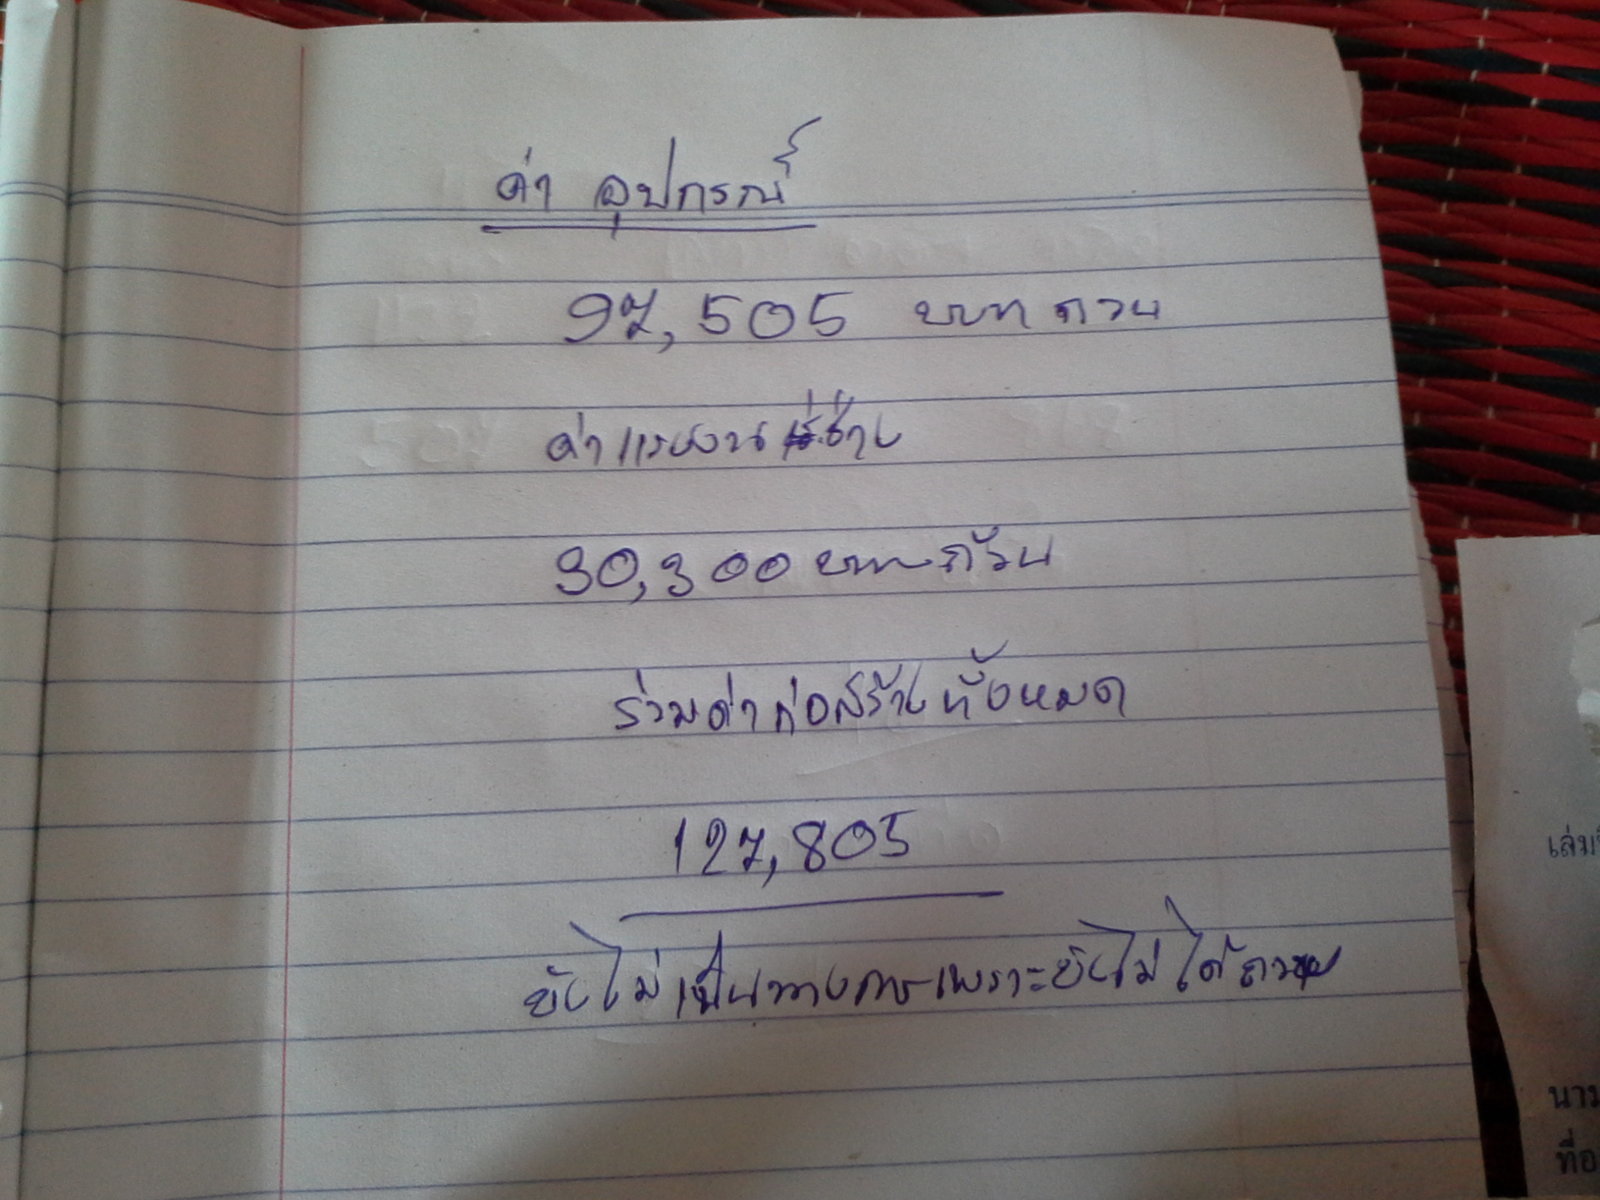 ค่า อุปกรณ์
97,505 บาท ถวน
ค่าแรงงาน ช่าง
30,300 บาท ถ้วน
ร่วมค่าก่อสร้างทั้งหมด
127,805
ยังไม่เป็นทางการเพราะยังไม่ได้
เล่ม
นาม
ที่อ